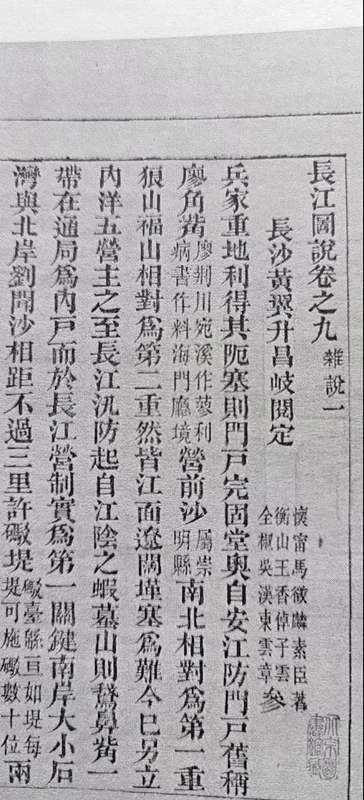 長江圖說卷之九 雜說一
長沙黃翼升昌岐閱定
懷甯馬徵麟素臣著
衡山王香倬子雲
全椒吳漢東雲章 參
兵家重地利得其阨塞則門戶完固堂奧自安江防門戶舊稱
廖角觜 廖荆川宛溪作蓼利病書作料海門廳境 營前沙 屬崇明縣 南北相對爲第一重
狼山福山相對爲第二重然皆江面遼闊墐塞爲難今巳另立
內洋五營主之至長江汛防起自江陰之蝦墓山則鵞鼻觜一
帶在通局爲內戶而於長江營制實爲第一關鍵南岸大小石
灣與北岸劉聞沙相距不過三里許礮堤 礮臺緜亘如堤每堤可施礮數十位 兩